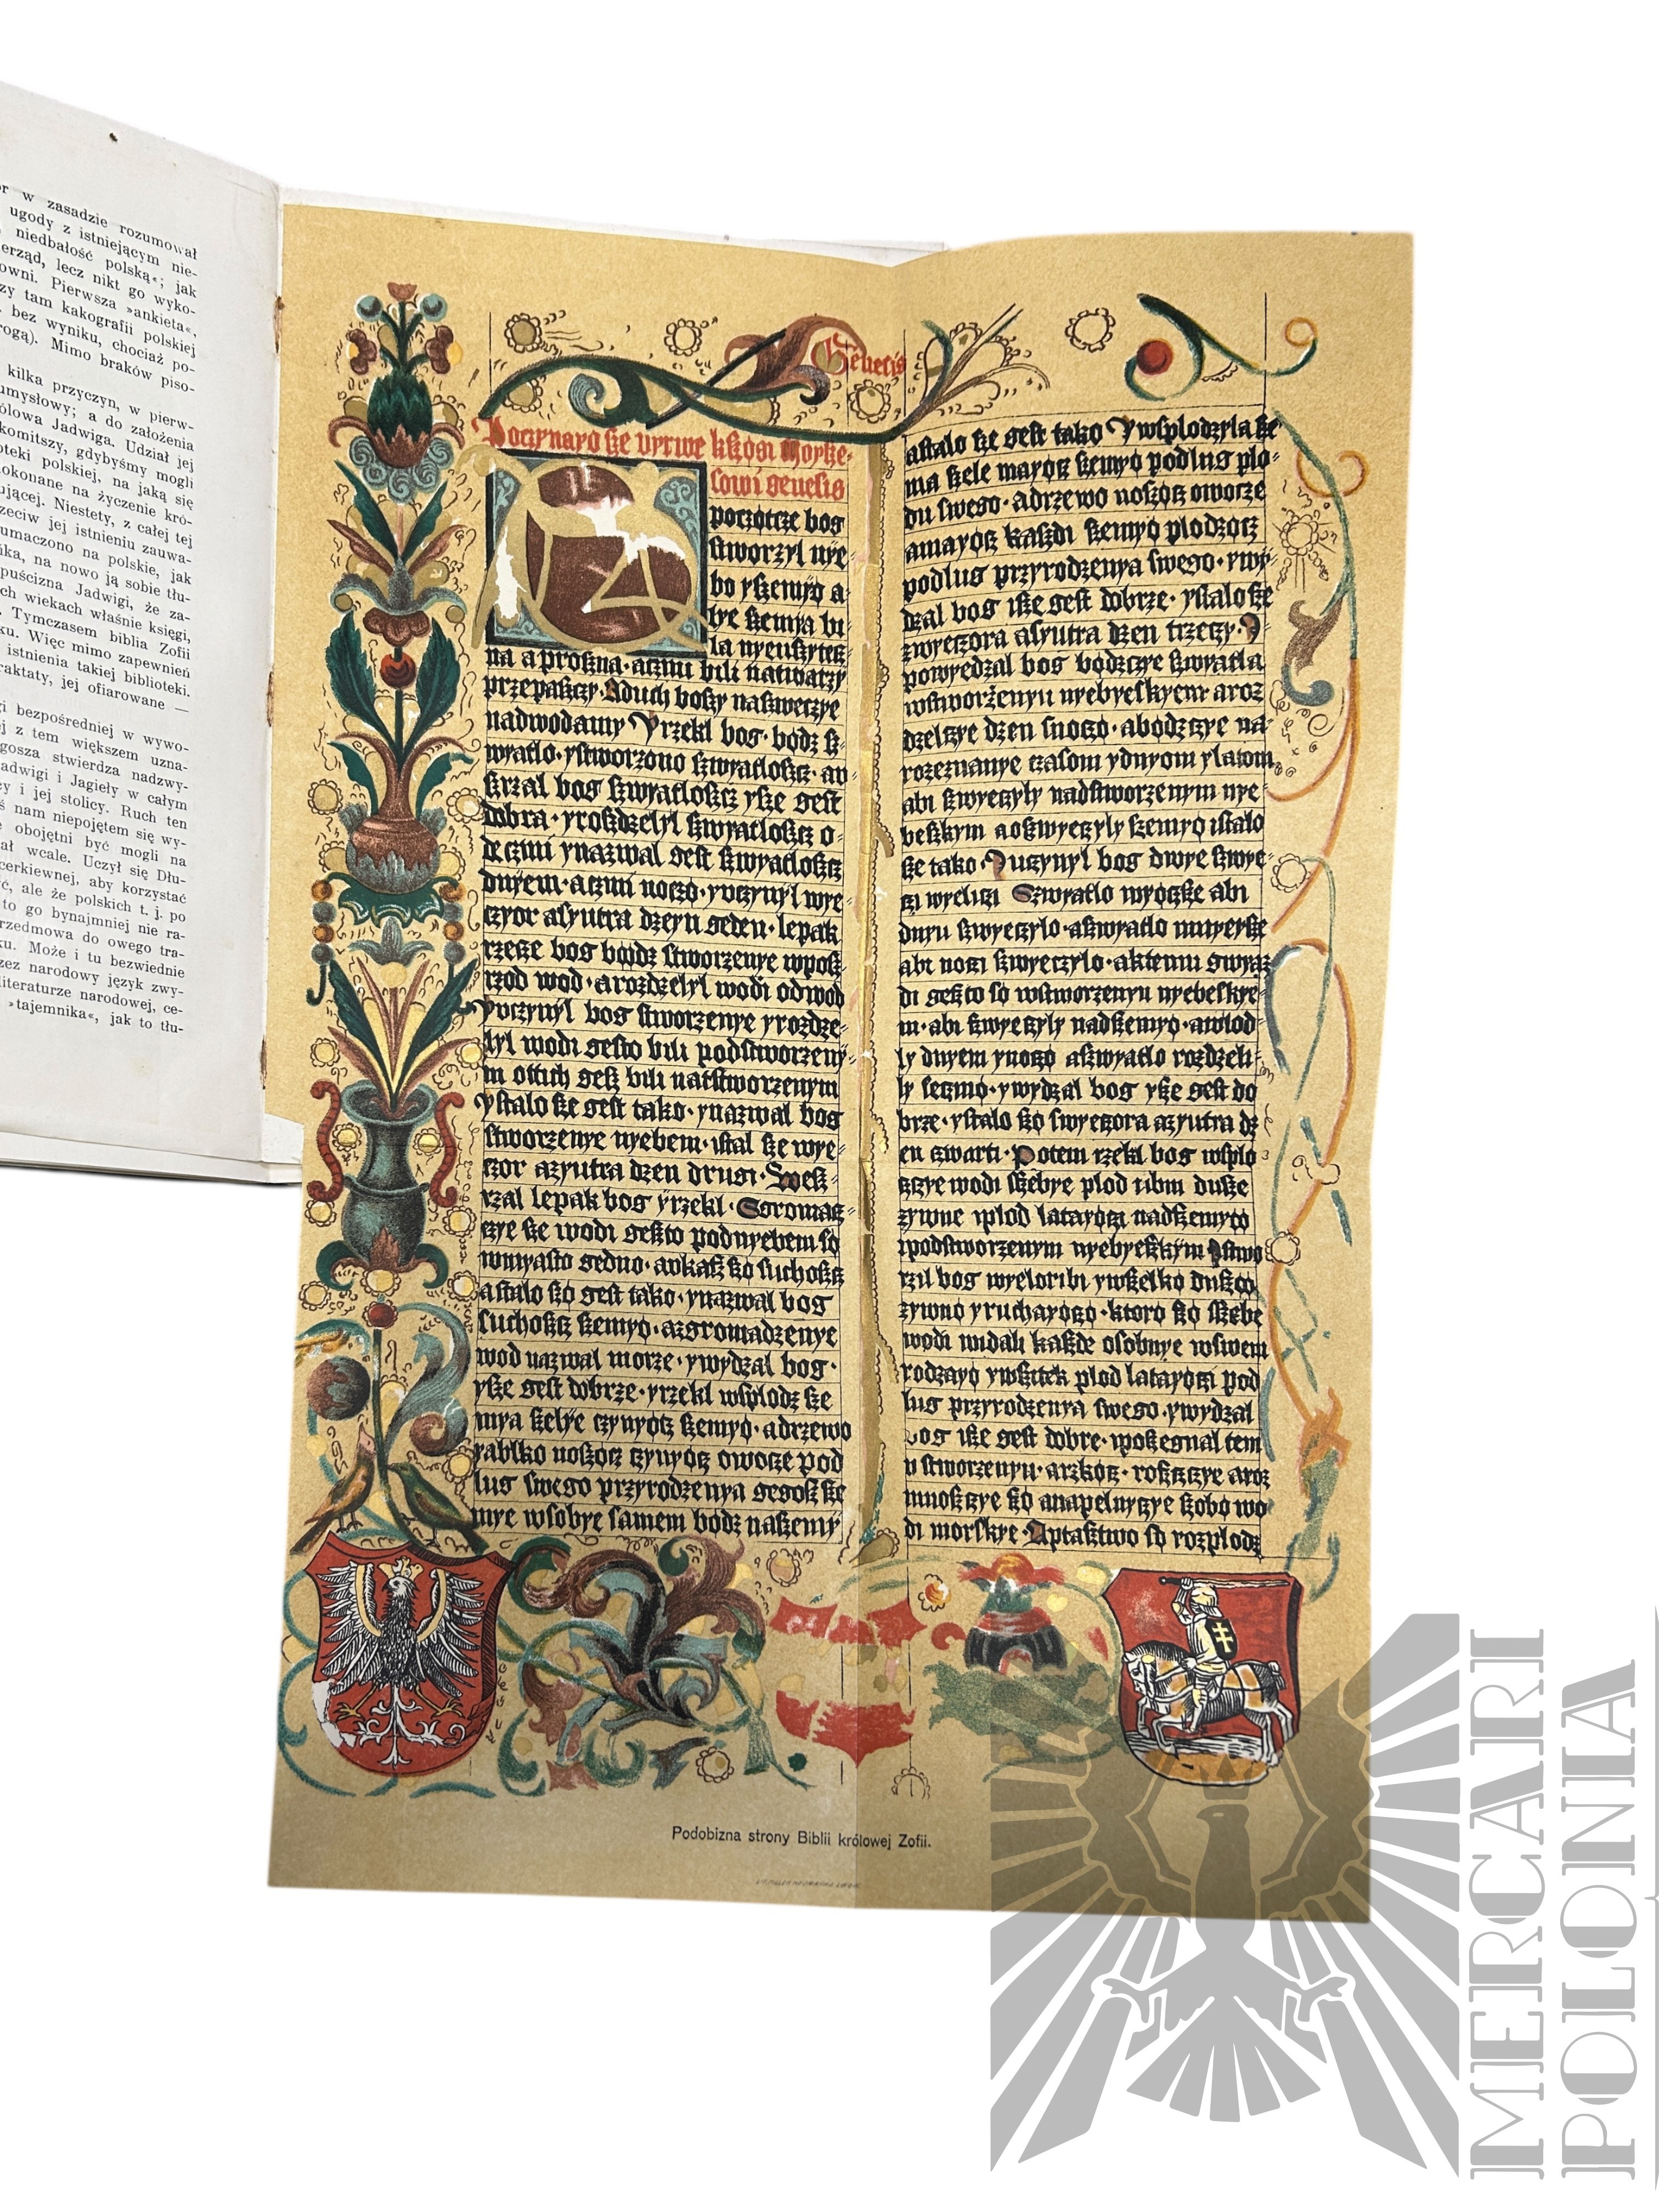 r w zasadzie rozumował
ugody z istniejącym nie-
niedbałość polską«; jak
erząd, lecz nikt go wyko-
owni. Pierwsza »ankieta«,
zy tam kakografii polskiej
bez wyniku, chociaż po-
rogą). Mimo braków piso-
kilka przyczyn, w pierw-
umysłowy; a do założenia
ólowa Jadwiga. Udział jej
komitszy, gdybyśmy mogli
oteki polskiej, na jaką się
lokonane na życzenie kró-
ującej. Niestety, z całej tej
rzeciw jej istnieniu zauwa-
umaczono na polskie, jak
ńka, na nowo ją sobie tłu-
puścizna Jadwigi, że za-
ch wiekach właśnie księgi,
. Tymczasem biblia Zofii
ku. Więc mimo zapewnień
istnienia takiej biblioteki.
raktaty, jej ofiarowane —
gi bezpośredniej w wywo-
j z tem większem uzna-
gosza stwierdza nadzwy-
adwigi i Jagieły w całym
cy i jej stolicy. Ruch ten
ś nam niepojętem się wy-
e obojętni być mogli na
ał wcale. Uczył się Dłu-
cerkiewnej, aby korzystać
ć, ale że polskich t. j. po
to go bynajmniej nie ra-
rzedmowa do owego tra-
ku. Może i tu bezwiednie
zez narodowy język zwy-
literaturze narodowej, ce-
»tajemnika«, jak to tłu-
Genesis
Poczynayø sze pyrwe kszøgi Moysze-
szowi genesis
poczøtcze bog
stworzyl nye
bo yszemyø a-
lye szemya bi
la nyeuszytcz-
na a prozna. aczmi bili natwarzy
przepasczy. Aduch boszy naszweczye
nadwodamy Yrzekl bog. bødz sz-
wyatlo. ystworzono szwyatloszcz. aw-
szrzal bog szwyatloszcz ysze gest
dobra. yroszdzelyl szwyatloszcz o-
deczmi ynazwal gest szwyatloszcz
dnyem. aczmi noczø. yvczynyl wye-
czyor asyutra dzeyn geden. lepak
rzecze bog bødz stworzenye wposz-
rzod wod. arozdzelyl wodi odwod
Yvczynyl bog stworzenye yrozdze-
lyl wodi gesto bili podstworzeny-
m ottich gesz bili natstworzenym
Ystalo sze gest tako. ynazwal bog
stworzenye nyebem. istal sze wye-
czor azyutra dzen drugi. Wesz-
rzal lepak bog yrzekl. Sgromacz-
czye sze wodi geszto podnyebem sø
wmyasto gedno. avkasz szø suchoszcz
astalo szø gest tako. ynazwal bog
suchoszcz szemyø. azgromadzenye
wod nazwal morze. ywydzal bog.
ysze gest dobrze. yrzekl wsplodz sze
mya szelye czynyøcz szemyø. adrzewo
yablko noszøcz czynyøcz owocze pod
lug swego przyrodzenya gegosz sze
mye wsobye samem bødz naszemy
astalo sze gest tako Ywsplodzyla sze
ma szele mayøcz szemyø podlug plo-
du swego. adrzewo noszøcz owocze
amayøcz kaszdi szemyø plodzøcz
podlug przyrodzenya swego. ywy-
dzal bog isze gest dobrze. ystalo sze
zwyeczora asyutra dzen trzeczy. A
powyedzal bog bødzczye szwyatla
wstworzenyu nyebyeskyem aroz
dzelczye dzen snoczø. abødzczye na-
rozeznanye czasom ydnyom ylatom
abi szwyeczyly nadstworzenym nye-
beszkym aoszwyeczyly szemyø istalo
sze tako. Yuczynyl bog dwye szwye-
czi wyeliczi Szwyatlo wyøcsze abi
dnyu szwyeczylo. aszwyatlo mnyeysze
abi noczi szwyeczylo. aktemu gwyaz
di geszto sø wstworzenyu nyebeskye-
m. abi szwyeczyly nadszemyø. awlod-
ly dnyem ynoczø aszwyatlo rozdzeli-
ly seczmø. ywydzal bog ysze gest do
brze. ystalo szø swyeczora azyutra dz
en czwarti. Potem rzekl bog wsplo
czczye wodi szebye plod ribni dusze
zywne yplod latayøczi nadszemyø
ipodstworzenym nyebyeszkym Istwo
rzil bog wyeloribi ywszelkø duszø
zywnø yruchayøczø. ktorø szø szebe
wodi widali kaszde osobnye wswem
rodzayø ywszitek plod latayøczi pod
lug przyrodzenya swego. ywydzal
bog isze gest dobre. iposzegnal tem
u stworzenyu. arzkøcz. roszczczye aroz
mnoszczye szø anapelnyczye szobø wo
di morskye. Aptastwo sø rozplodz
Podobizna strony Biblii królowej Zofii.
MERCARI
POLONIA